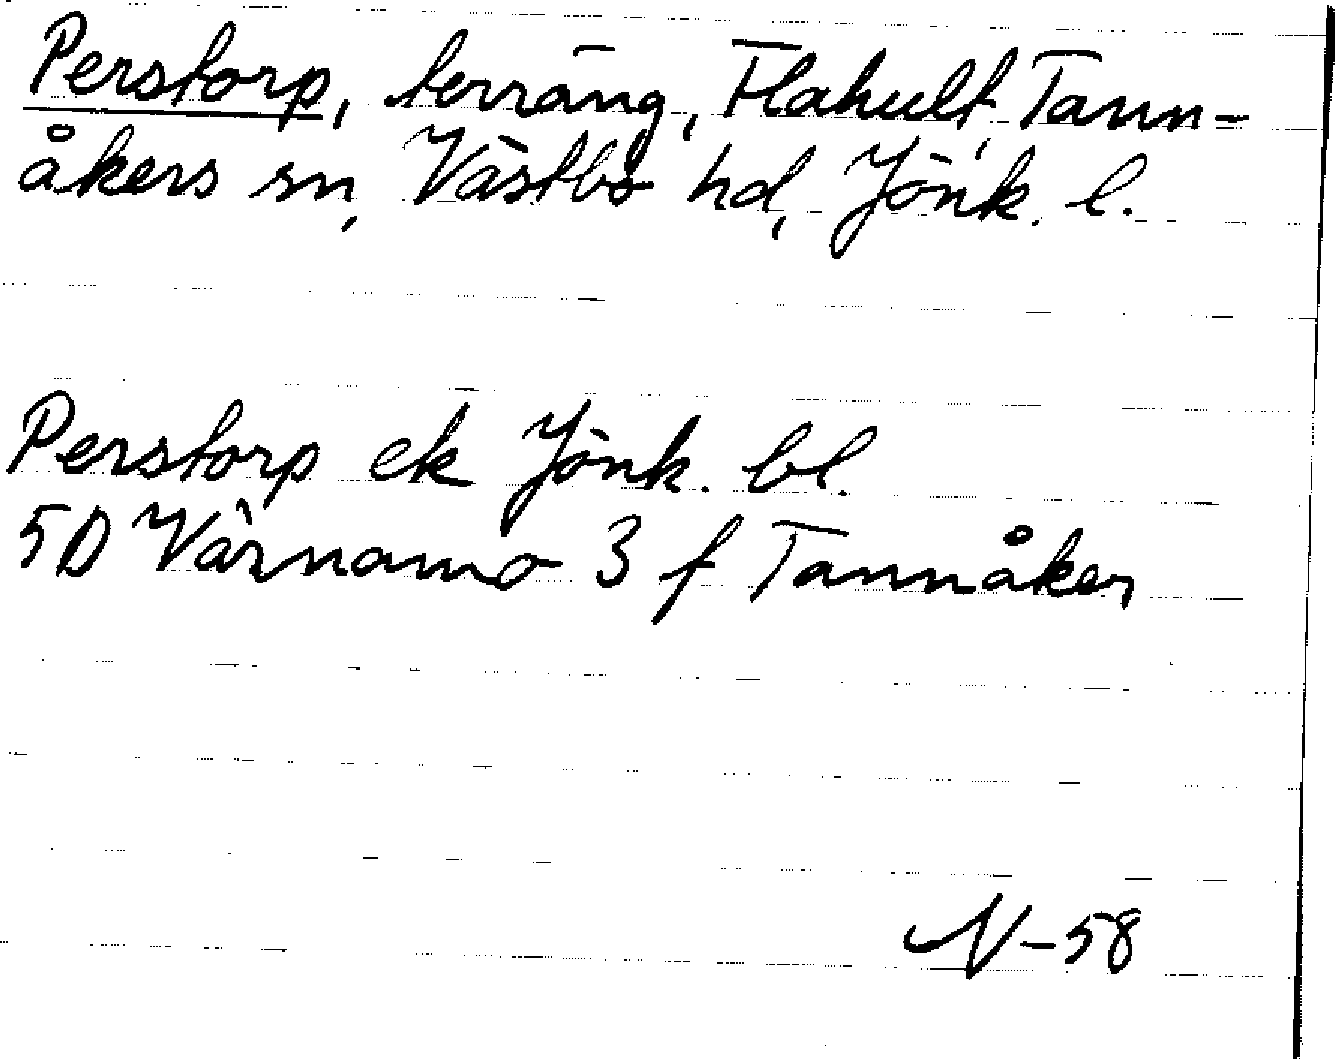 Perstorp, terräng, Flahult, Tann-
åkers sn, Västbo hd, Jönk. l.
Perstorp ek Jönk. bl.
5D Värnamo 3 f Tannåker
N-58